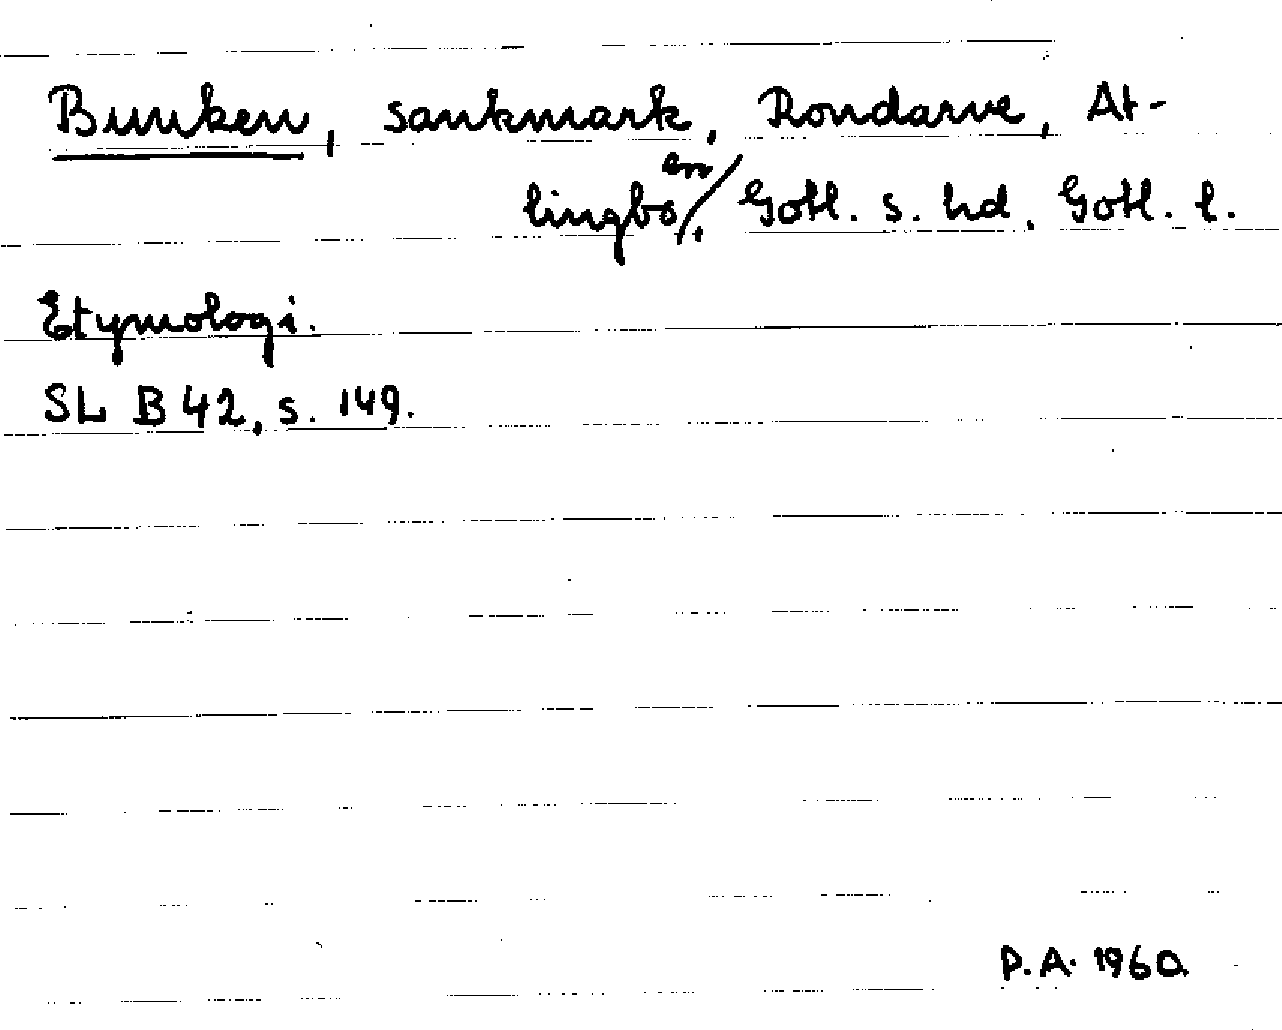 Bunken, sankmark, Rondarve, At-
lingbo sn, Gotl. s. hd. Gotl. l.
Etymologi.
SL B 42, s. 149.
P.A. 1960.